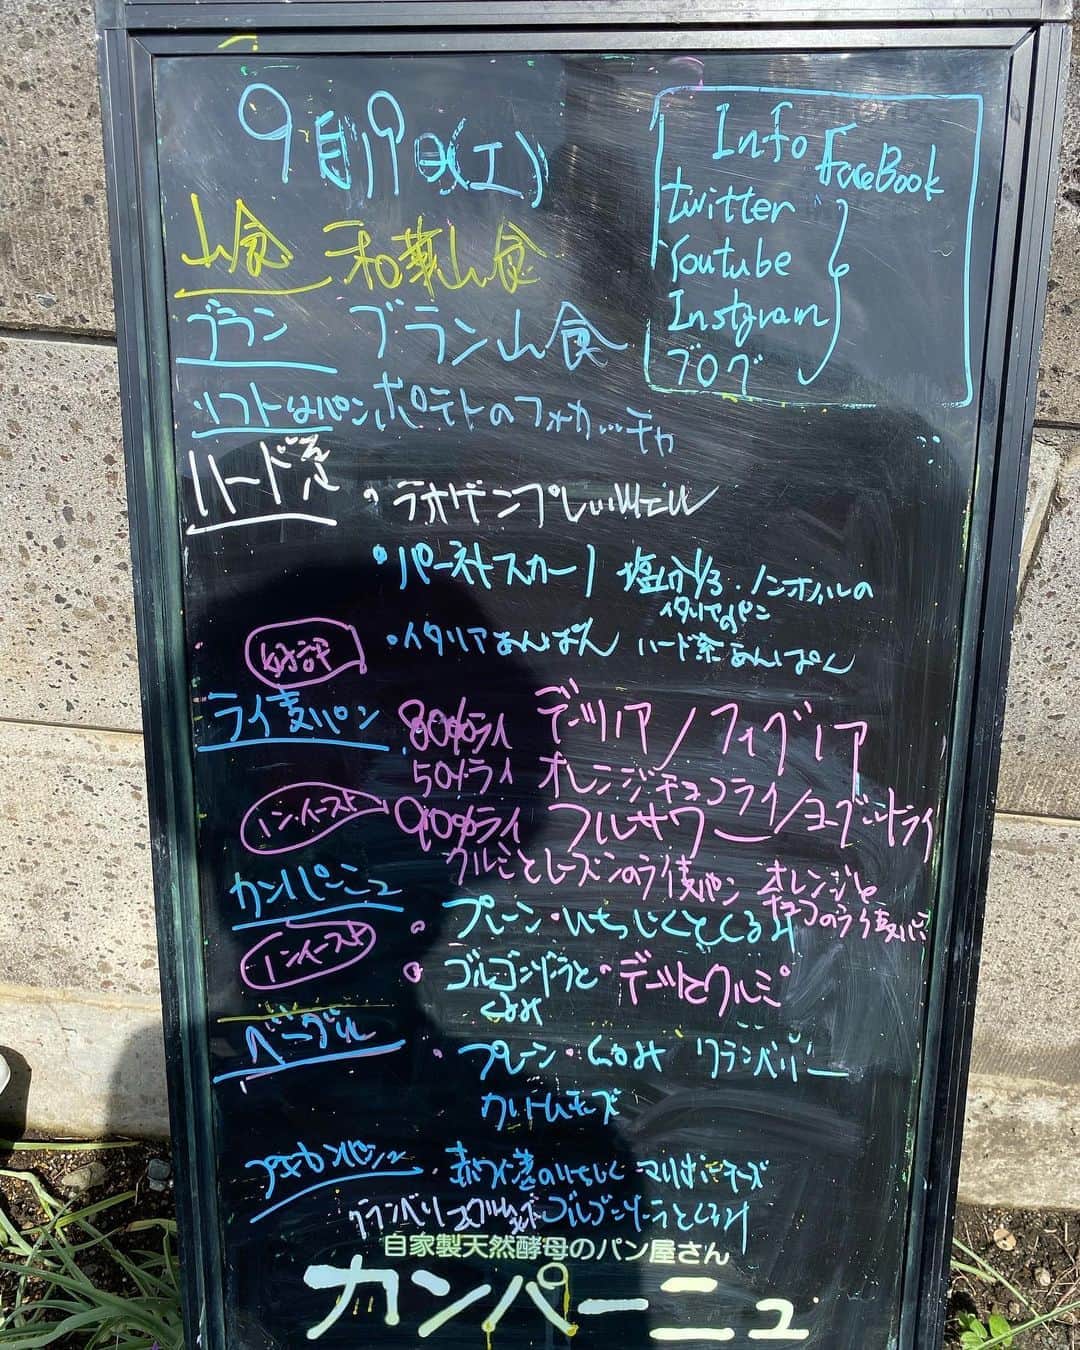 9月19日(土)
Info
FaceBook
twitter
Youtube
Instgram
ブログ
山食 和華山食
ブラン ブラン山食
ソフトなパン ポテトのフォカッチャ
ハード系
・ラオゲンプレッツェル
・パーネトスカーノ 塩分ゼロ・ノンオイルの
イタリアのパン
・イタリアあんぱん ハード系あんぱん
好評
ライ麦パン 80%ライ デーツリア/フィグリア
50%ライ オレンジチョコライ/ヨーグルトライ
ノン・イースト 90%ライ フルサワー
クルミとレーズンのライ麦パン オレンジと
チョコのライ麦パン
カンパーニュ ・プレーン・いちじくとくるみ
ノンイースト ・ゴルゴンゾーラと
くるみ
・デーツとクルミ
ベーグル ・プレーン・くるみ クランベリー
クリームチーズ
プチカンパーニュ ・赤ワイン煮のいちじく マリボーチーズ
クランベリー
ゴルゴンゾーラとくるみ
自家製天然酵母のパン屋さん
カンパーニュ